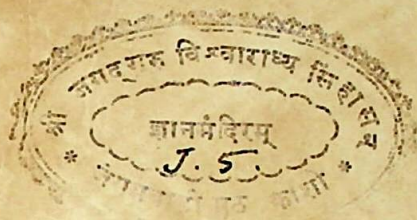 श्री जगद्गुरु विश्वाराध्य सिंहासन
ज्ञानमंदिरम्
J. 5.